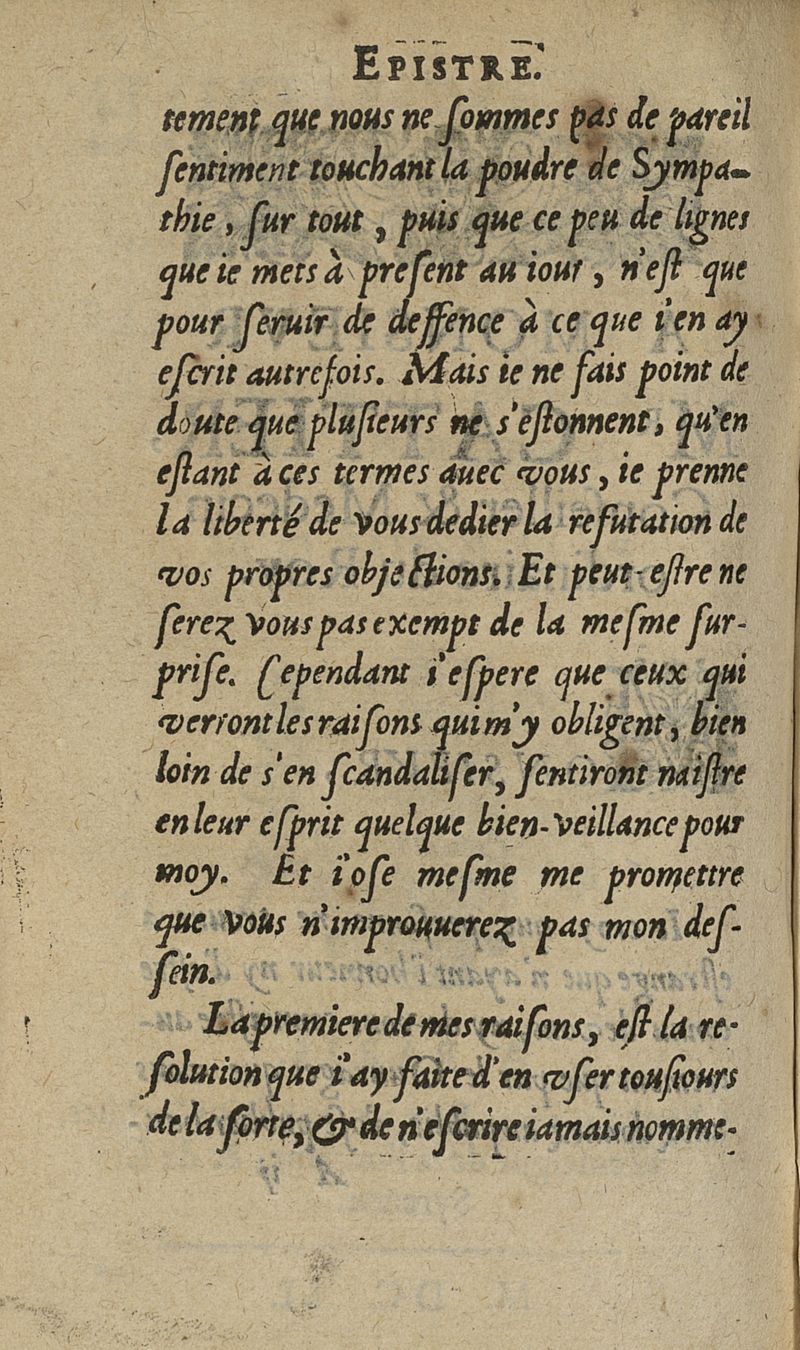 EPISTRE.
tement que nous ne ſommes pas de pareil
ſentiment touchant la poudre de Sympa-
thie, ſur tout, puis que ce peu de lignes
que ie mets à preſent au iour, n'eſt que
pour ſeruir de deffence à ce que i'en ay
eſcrit autrefois. Mais ie ne fais point de
doute que pluſieurs ne s'eſtonnent, qu'en
eſtant à ces termes auec vous, ie prenne
la liberté de vous dedier la refutation de
vos propres objections. Et peut-eſtre ne
ſerez vous pas exempt de la meſme ſur-
priſe. Cependant i'eſpere que ceux qui
verront les raiſons qui m'y obligent, bien
loin de s'en ſcandaliſer, ſentiront naiſtre
en leur eſprit quelque bien-veillance pour
moy. Et i'oſe meſme me promettre
que vous n'improuuerez pas mon deſ-
ſein.
La premiere de mes raiſons, eſt la re-
ſolution que i'ay faite d'en vſer touſiours
de la ſorte, & de n'eſcrire iamais nomme-